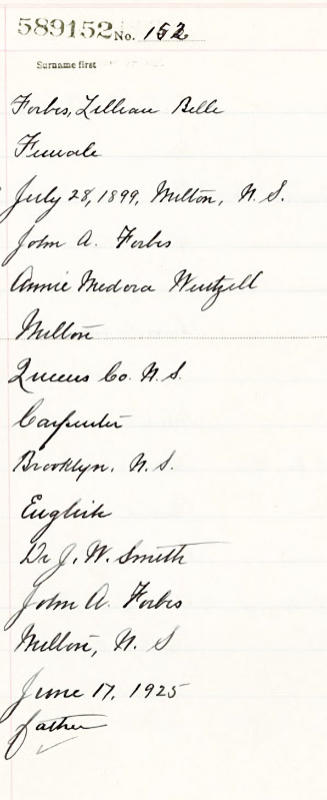 589152 No. 152
Surname first
Forbes, Lillian Belle
Female
July 28, 1899, Milton, N. S.
John A. Forbes
Annie Medora Wentzell
Milton
Queens Co. N. S.
Carpenter
Brooklyn, N. S.
English
Dr J. W. Smith
John A. Forbes
Milton, N. S
June 17, 1925
father